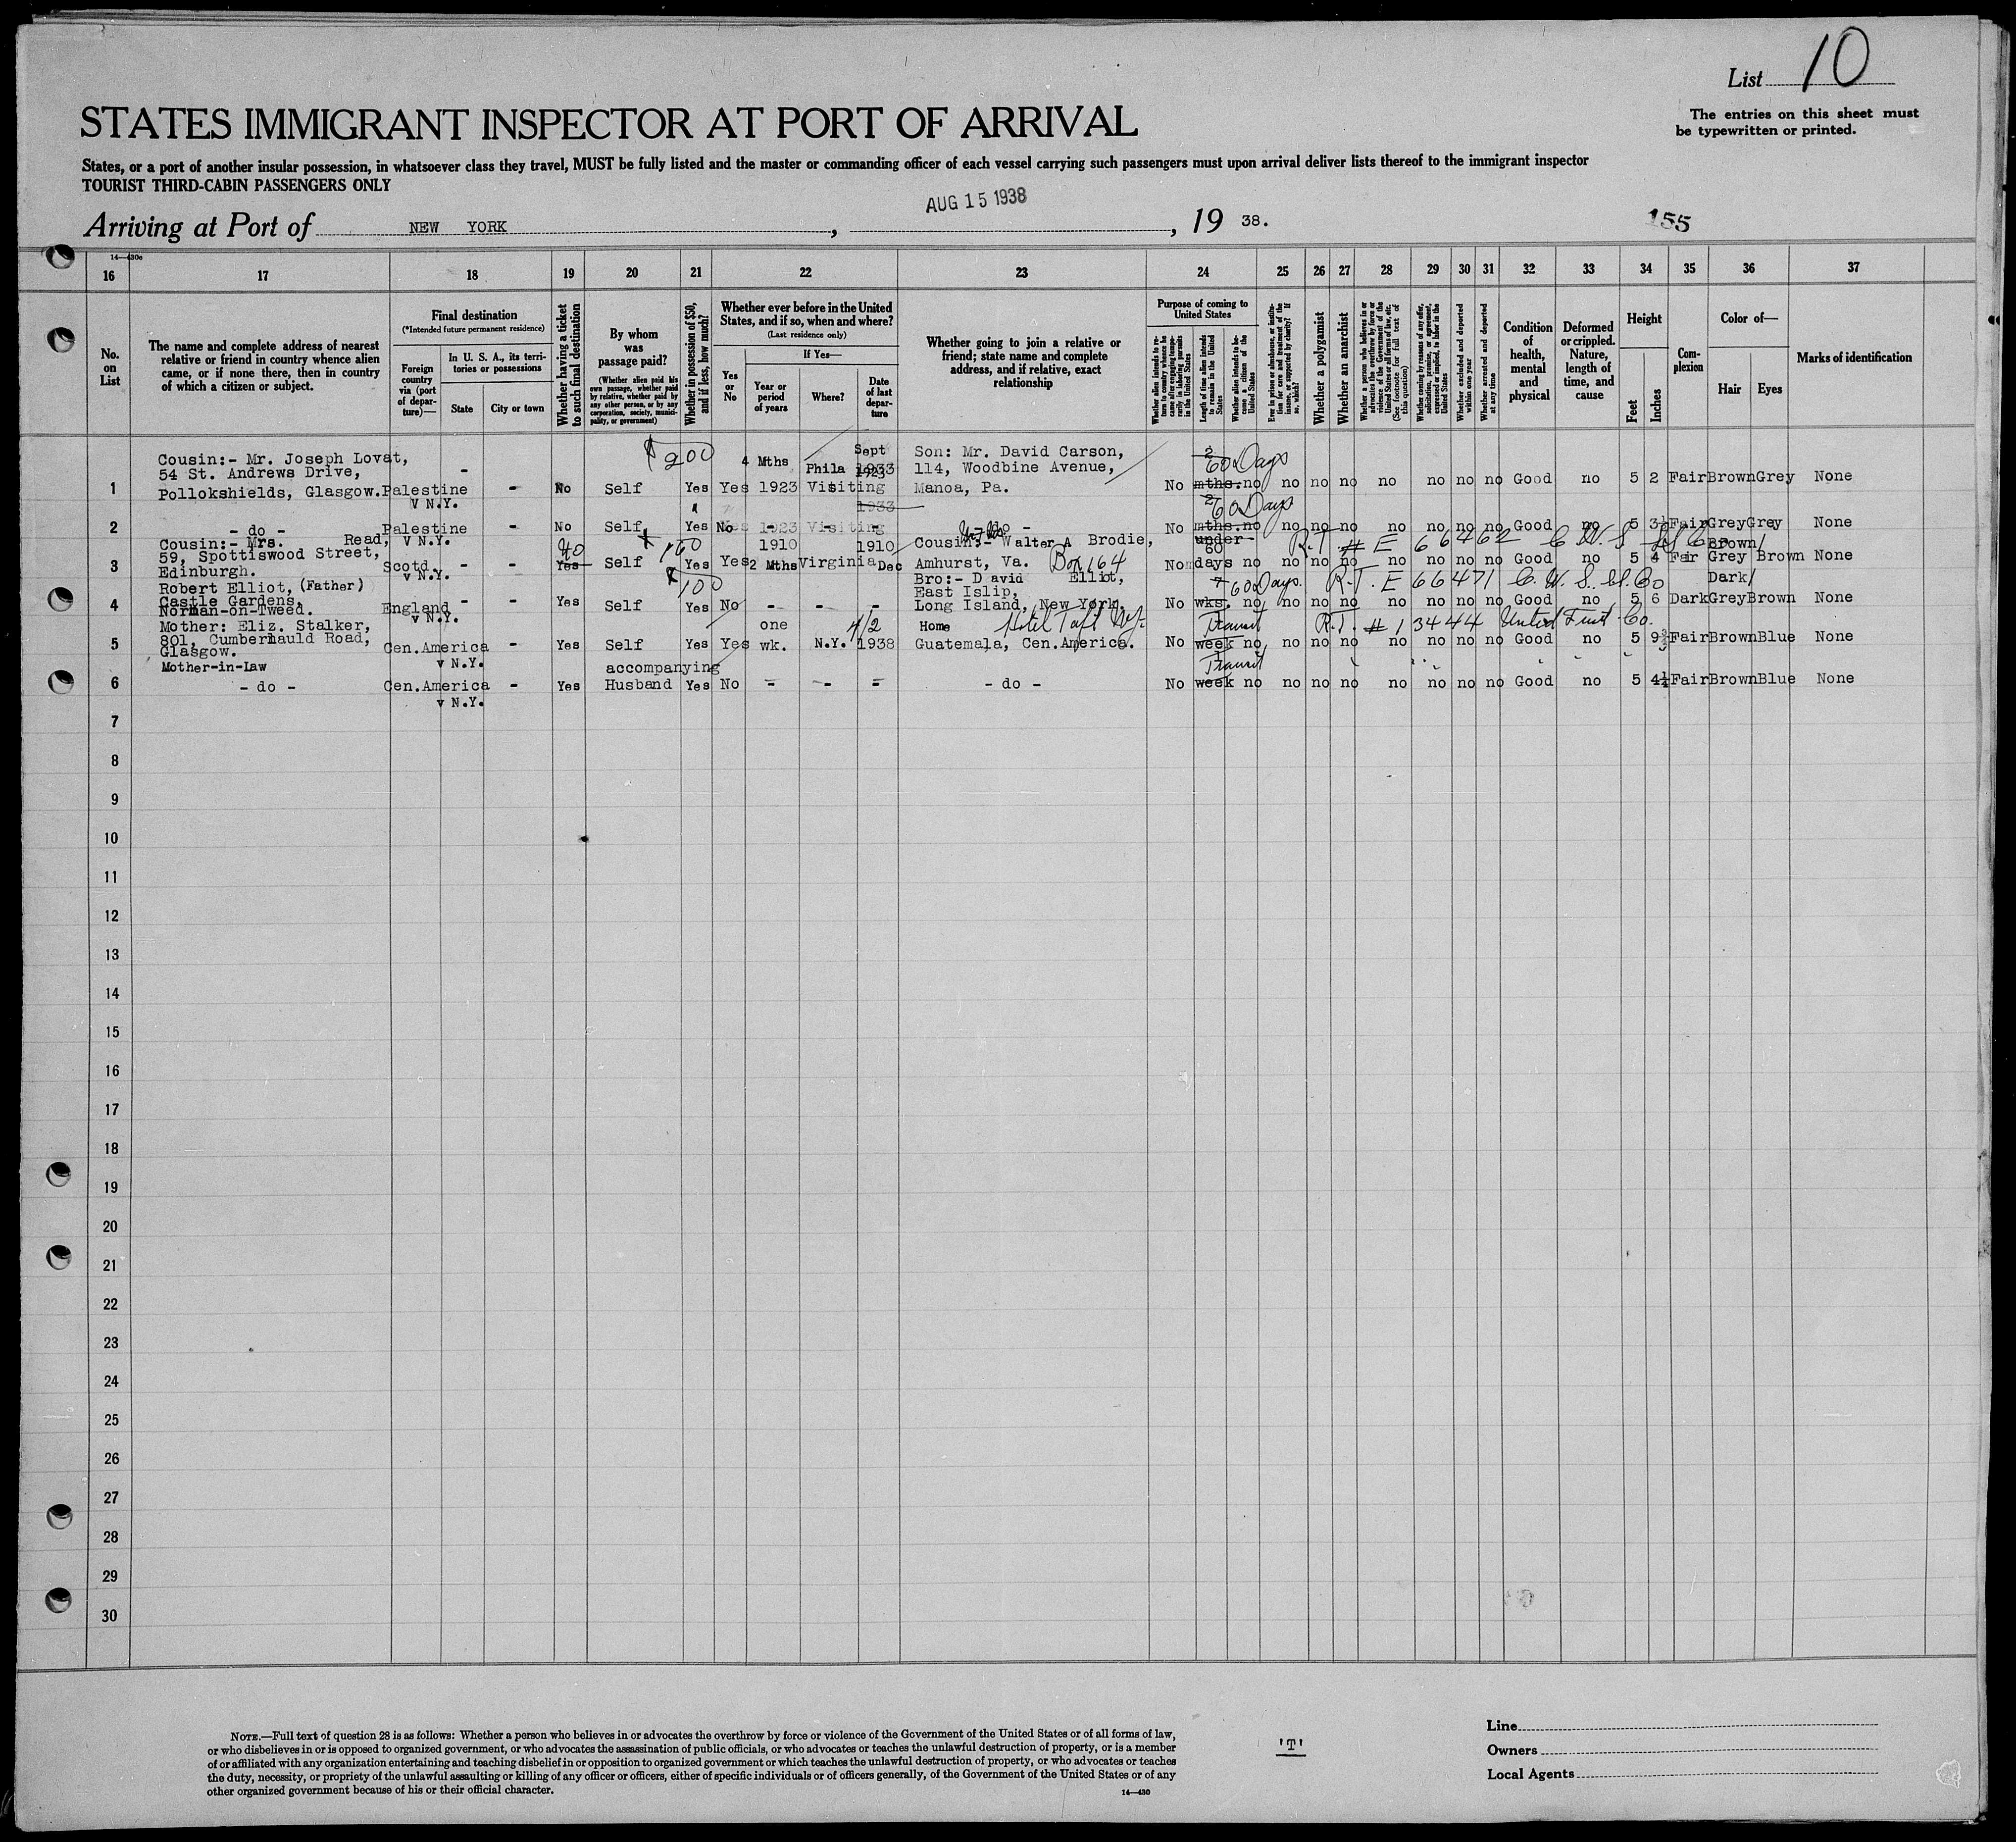 List 10
STATES IMMIGRANT INSPECTOR AT PORT OF ARRIVAL
The entries on this sheet must
be typewritten or printed.
States, or a port of another insular possession, in whatsoever class they travel, MUST be fully listed and the master or commanding officer of each vessel carrying such passengers must upon arrival deliver lists thereof to the immigrant inspector
TOURIST THIRD-CABIN PASSENGERS ONLY
AUG 15 1938
Arriving at Port of NEW YORK , , 19 38.
155
16 17 18 19 20 21 22 23 24 25 26 27 28 29 30 31 32 33 34 35 36 37
No. on List
The name and complete address of nearest relative or friend in country whence alien came, or if none there, then in country of which a citizen or subject.
Final destination
(*Intended future permanent residence)
Foreign country via (port of departure)—
In U. S. A., its territories or possessions
State
City or town
Whether having a ticket to such final destination
By whom was passage paid?
(Whether alien paid his own passage, whether paid by relative, whether paid by any other person, or by any corporation, society, municipality, or government)
Whether in possession of $50, and if less, how much?
Whether ever before in the United States, and if so, when and where?
(Last residence only)
Yes or No
If Yes—
Year or period of years
Where?
Date of last departure
Whether going to join a relative or friend; state name and complete address, and if relative, exact relationship
Purpose of coming to United States
Length of time alien intends to remain in the United States
Whether alien intends to become a citizen of the United States
Whether a polygamist
Whether an anarchist
Whether excluded and deported within one year
Whether arrested and deported at any time
Condition of health, mental and physical
Deformed or crippled. Nature, length of time, and cause
Height
Feet
Inches
Complexion
Color of—
Hair
Eyes
Marks of identification
Cousin:- Mr. Joseph Lovat, $200 4 Mths Sept Son: Mr. David Carson, 2
54 St. Andrews Drive, - Phila 1933 114, Woodbine Avenue, 60 Days
1 Pollokshields, Glasgow. Palestine - No Self Yes Yes 1923 Visiting Manoa, Pa. No mths. no no no no no no no no Good no 5 2 Fair Brown Grey None
V N.Y. 1933 2 60 Days
2 - do - Palestine - No Self Yes No - - - - do - No mths. no no no no no no no no Good no 5 3½ Fair Grey Grey None
Cousin:- Mrs. Read, V N.Y. 160 1910 1910 Cousin:- Walter A Brodie, under 60 R.T. # E 66462 Brown/
59, Spottiswood Street,
3 Edinburgh. Scotd. - - Yes Self Yes Yes 2 Mths Virginia Dec Amhurst, Va. Box 164 No days no no no no no no no no Good no 5 4 Fair Grey Brown None
V N.Y.
Robert Elliot, (Father) 100 Bro:- David Elliot, 7 60 Days. R.T. E 66471 Dark/
Castle Gardens, East Islip,
4 Norman-on-Tweed. England - - Yes Self Yes No - - - Long Island, New York. No wks. no no no no no no no no Good no 5 6 Dark Grey Brown None
V N.Y.
Mother: Eliz. Stalker, one 4/2 Home Hotel Taft Transit R.T. # 13444 United Fruit Co.
801, Cumbernauld Road,
5 Glasgow. Cen.America - Yes Self Yes Yes wk. N.Y. 1938 Guatemala, Cen.America. No week no no no no no no no no Good no 5 9¾ Fair Brown Blue None
Mother-in-Law V N.Y. accompanying Transit
6 - do - Cen.America - Yes Husband Yes No - - - - do - No week no no no no no no no no Good no 5 4½ Fair Brown Blue None
V N.Y.
7
8
9
10
11
12
13
14
15
16
17
18
19
20
21
22
23
24
25
26
27
28
29
30
NOTE.—Full text of question 28 is as follows: Whether a person who believes in or advocates the overthrow by force or violence of the Government of the United States or of all forms of law,
or who disbelieves in or is opposed to organized government, or who advocates the assassination of public officials, or who advocates or teaches the unlawful destruction of property, or is a member
of or affiliated with any organization entertaining and teaching disbelief in or opposition to organized government or which teaches the unlawful destruction of property, or who advocates or teaches
the duty, necessity, or propriety of the unlawful assaulting or killing of any officer or officers, either of specific individuals or of officers generally, of the Government of the United States or of any
other organized government because of his or their official character.
14—430
'T'
Line
Owners
Local Agents